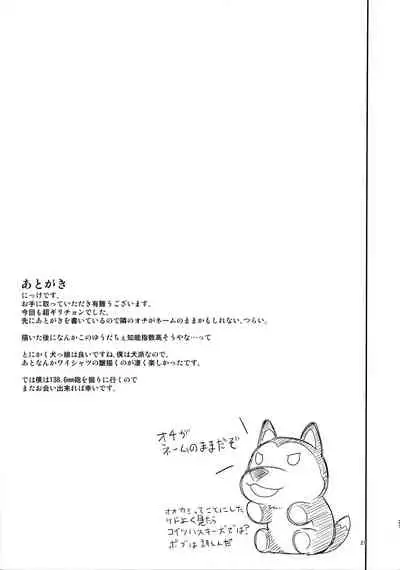 あとがき
にっけです。
お手に取っていただき有難うございます。
今回も超ギリチョンでした。
先にあとがきを書いているので隣のオチがネームのままかもしれない、つらい。
描いた後になんかこのゆうだちぇ知能指数高そうやな…って
とにかく犬っ娘は良いですね、僕は犬派なので。
あとなんかワイシャツの皺描くのが凄く楽しかったです。
では僕は138.6mm砲を掘りに行くので
またお会い出来れば幸いです。
オチが
ネームのままだぞ
オオカミってことにした
けどよく見たら
コイツハスキーズでは?